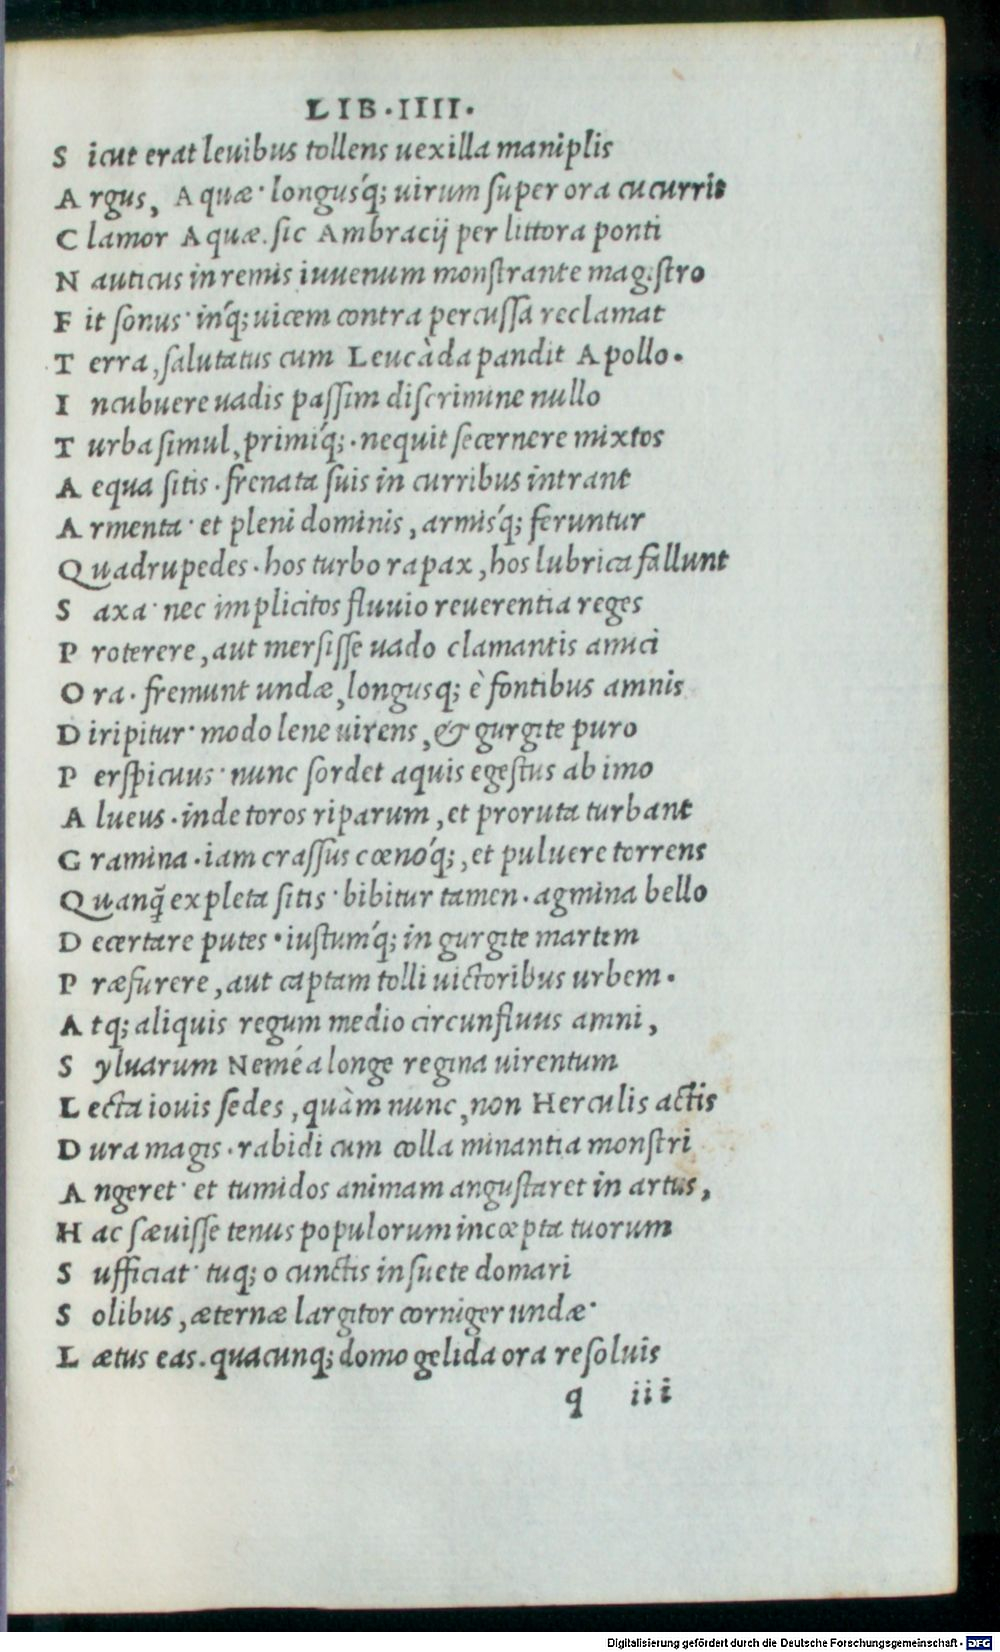 LIB·IIII·
S icut erat leuibus tollens uexilla maniplis
A rgus, Aquæ· longusq́; uirum super ora cucurrit
C lamor Aquæ. sic Ambracij per littora ponti
N auticus in remis iuuenum monstrante magistro
F it sonus· inq́; uicem contra percussa reclamat
T erra, salutatus cum Leucàda pandit Apollo.
I ncubuere uadis passim discrimine nullo
T urba simul, primiq́;· nequit secernere mixtos
A equa sitis· frenata suis in curribus intrant
A rmenta· et pleni dominis, armisq́; feruntur
Q uadrupedes· hos turbo rapax, hos lubrica fallunt
S axa· nec implicitos fluuio reuerentia reges
P roterere, aut mersisse uado clamantis amici
O ra· fremunt undæ, longusq; è fontibus amnis
D iripitur· modo lene uirens, & gurgite puro
P erspicuus· nunc sordet aquis egestus ab imo
A lueus· inde toros riparum, et proruta turbant
G ramina· iam crassus cœnoq́;, et puluere torrens
Q uanq̃ expleta sitis· bibitur tamen· agmina bello
D ecertare putes· iustumq́; in gurgite martem
P ræfurere, aut captam tolli uictoribus urbem.
A tq; aliquis regum medio circunfluus amni,
S yluarum Neméa longe regina uirentum
L ecta iouis sedes, quàm nunc, non Herculis actis
D ura magis· rabidi cum colla minantia monstri
A ngeret· et tumidos animam angustaret in artus,
H ac sæuisse tenus populorum incœpta tuorum
S ufficiat· tuq; o cunctis insuete domari
S olibus, æternæ largitor corniger undæ·
L ætus eas. quacunq; domo gelida ora resoluis
q iii
Digitalisierung gefördert durch die Deutsche Forschungsgemeinschaft - DFG